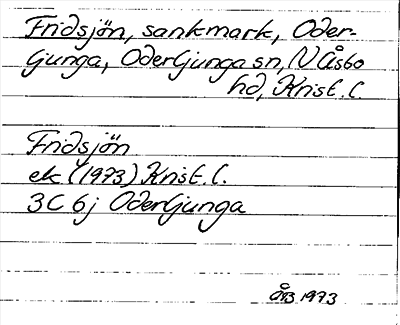 Fridsjön, sankmark, Oder-
ljunga, Oderljunga sn, N Åsbo
hd, Krist. l.
Fridsjön
ek (1973) Krist. l.
3C 6j Oderljunga
ÅB 1973